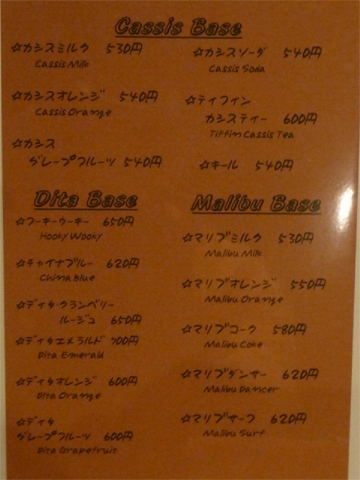 Cassis Base
☆カシスミルク 530円
Cassis Milk
☆カシスオレンジ 540円
Cassis Orange
☆カシス
グレープフルーツ 540円
☆カシスソーダ 540円
Cassis Soda
☆ティフィン
カシスティー 600円
Tiffin Cassis Tea
☆キール 540円
Dita Base
☆フーキーウーキー 650円
Hooky Wooky
☆チャイナブルー 620円
China Blue
☆ディタクランベリー
ルージュ 650円
☆ディタエメラルド 700円
Dita Emerald
☆ディタオレンジ 600円
Dita Orange
☆ディタ
グレープフルーツ 600円
Dita Grapefruit
Malibu Base
☆マリブミルク 530円
Malibu Milk
☆マリブオレンジ 550円
Malibu Orange
☆マリブコーク 580円
Malibu Coke
☆マリブダンサー 620円
Malibu Dancer
☆マリブサーフ 620円
Malibu Surf